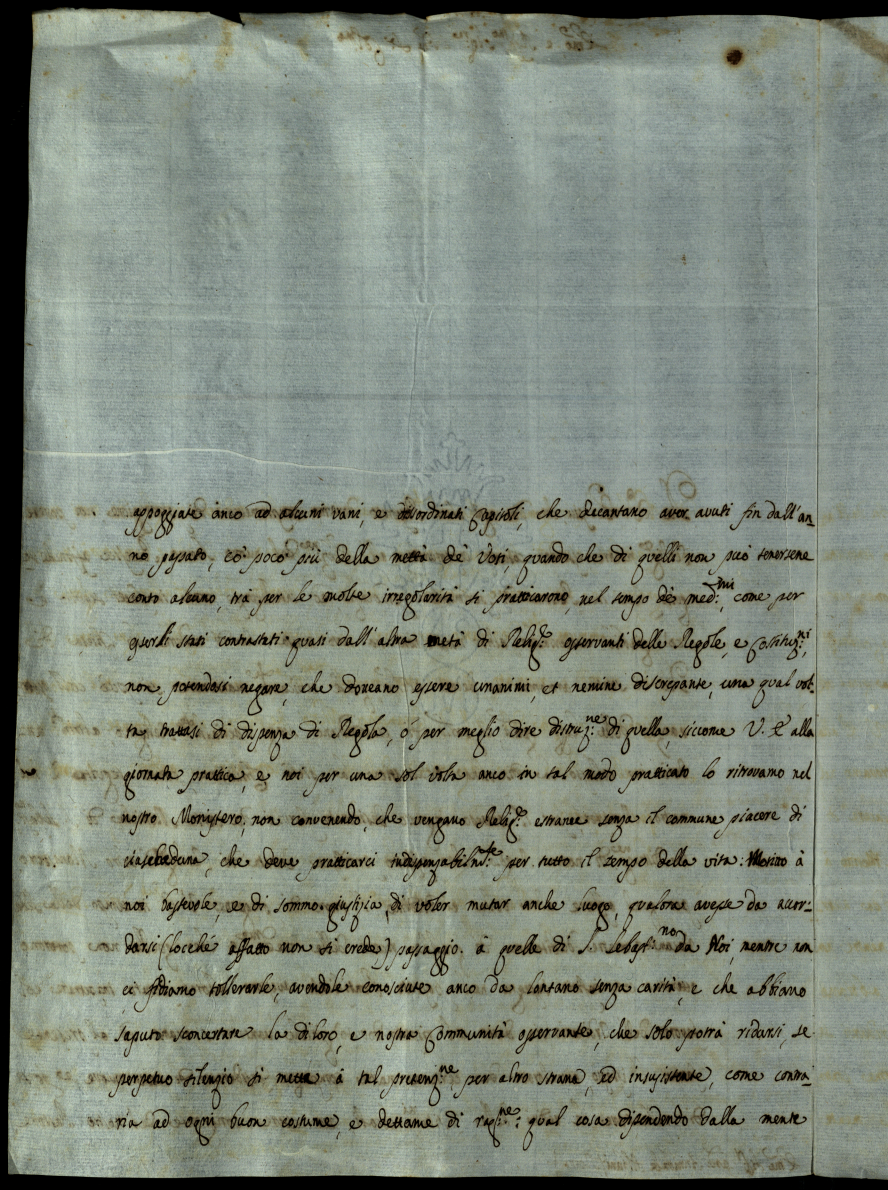 appoggiate anco ad alcuni vani, e disordinati Capitoli, che decantano aver avuti fin dall'an-
no passato, cò poco più della mettà dè Voti, quando che di quelli non può tenersene
conto alcuno, trà per le molte irregolarità si pratticarono, nel tempo dè med:mi, come per
essersi stati contrastati quasi dall'altra metà di Relig:e osservanti delle Regole, e Costituz:ni,
non potendosi negare, che doveano essere unanimi, et nemine discrepante, una qual vol-
ta trattasi di dispenza di Regola, ó per meglio dire distruz:ne di quella, siccome V. E. alla
giornata prattica, e noi per una sol volta anco in tal modo pratticato lo ritrovamo nel
nostro Monistero, non convenendo, che vengano Relig:e estranee senza il commune piacere di
ciascheduna, che deve pratticarci indispenzabilm:te per tutto il tempo della vita: Motivo à
noi bastevole, e di somma giustizia, di voler mutar anche luogo, qualora avesse da accor-
darsi (locché affatto non si crede) passaggio à quelle di S. Sebast:no da Noi, mentre non
ci fidiamo tollerarle, avendole conosciute anco da lontano senza carità, e che abbiano
saputo sconcertare la di loro, e nostra Communità osservante, che solo potrà ridarsi, se
perpetuo silenzio si mette à tal pretenz:ne per altro strana, ed insussistente, come contra-
ria ad ogni buon costume, e dettame di rag:ne; qual cosa dipendendo dalla mente